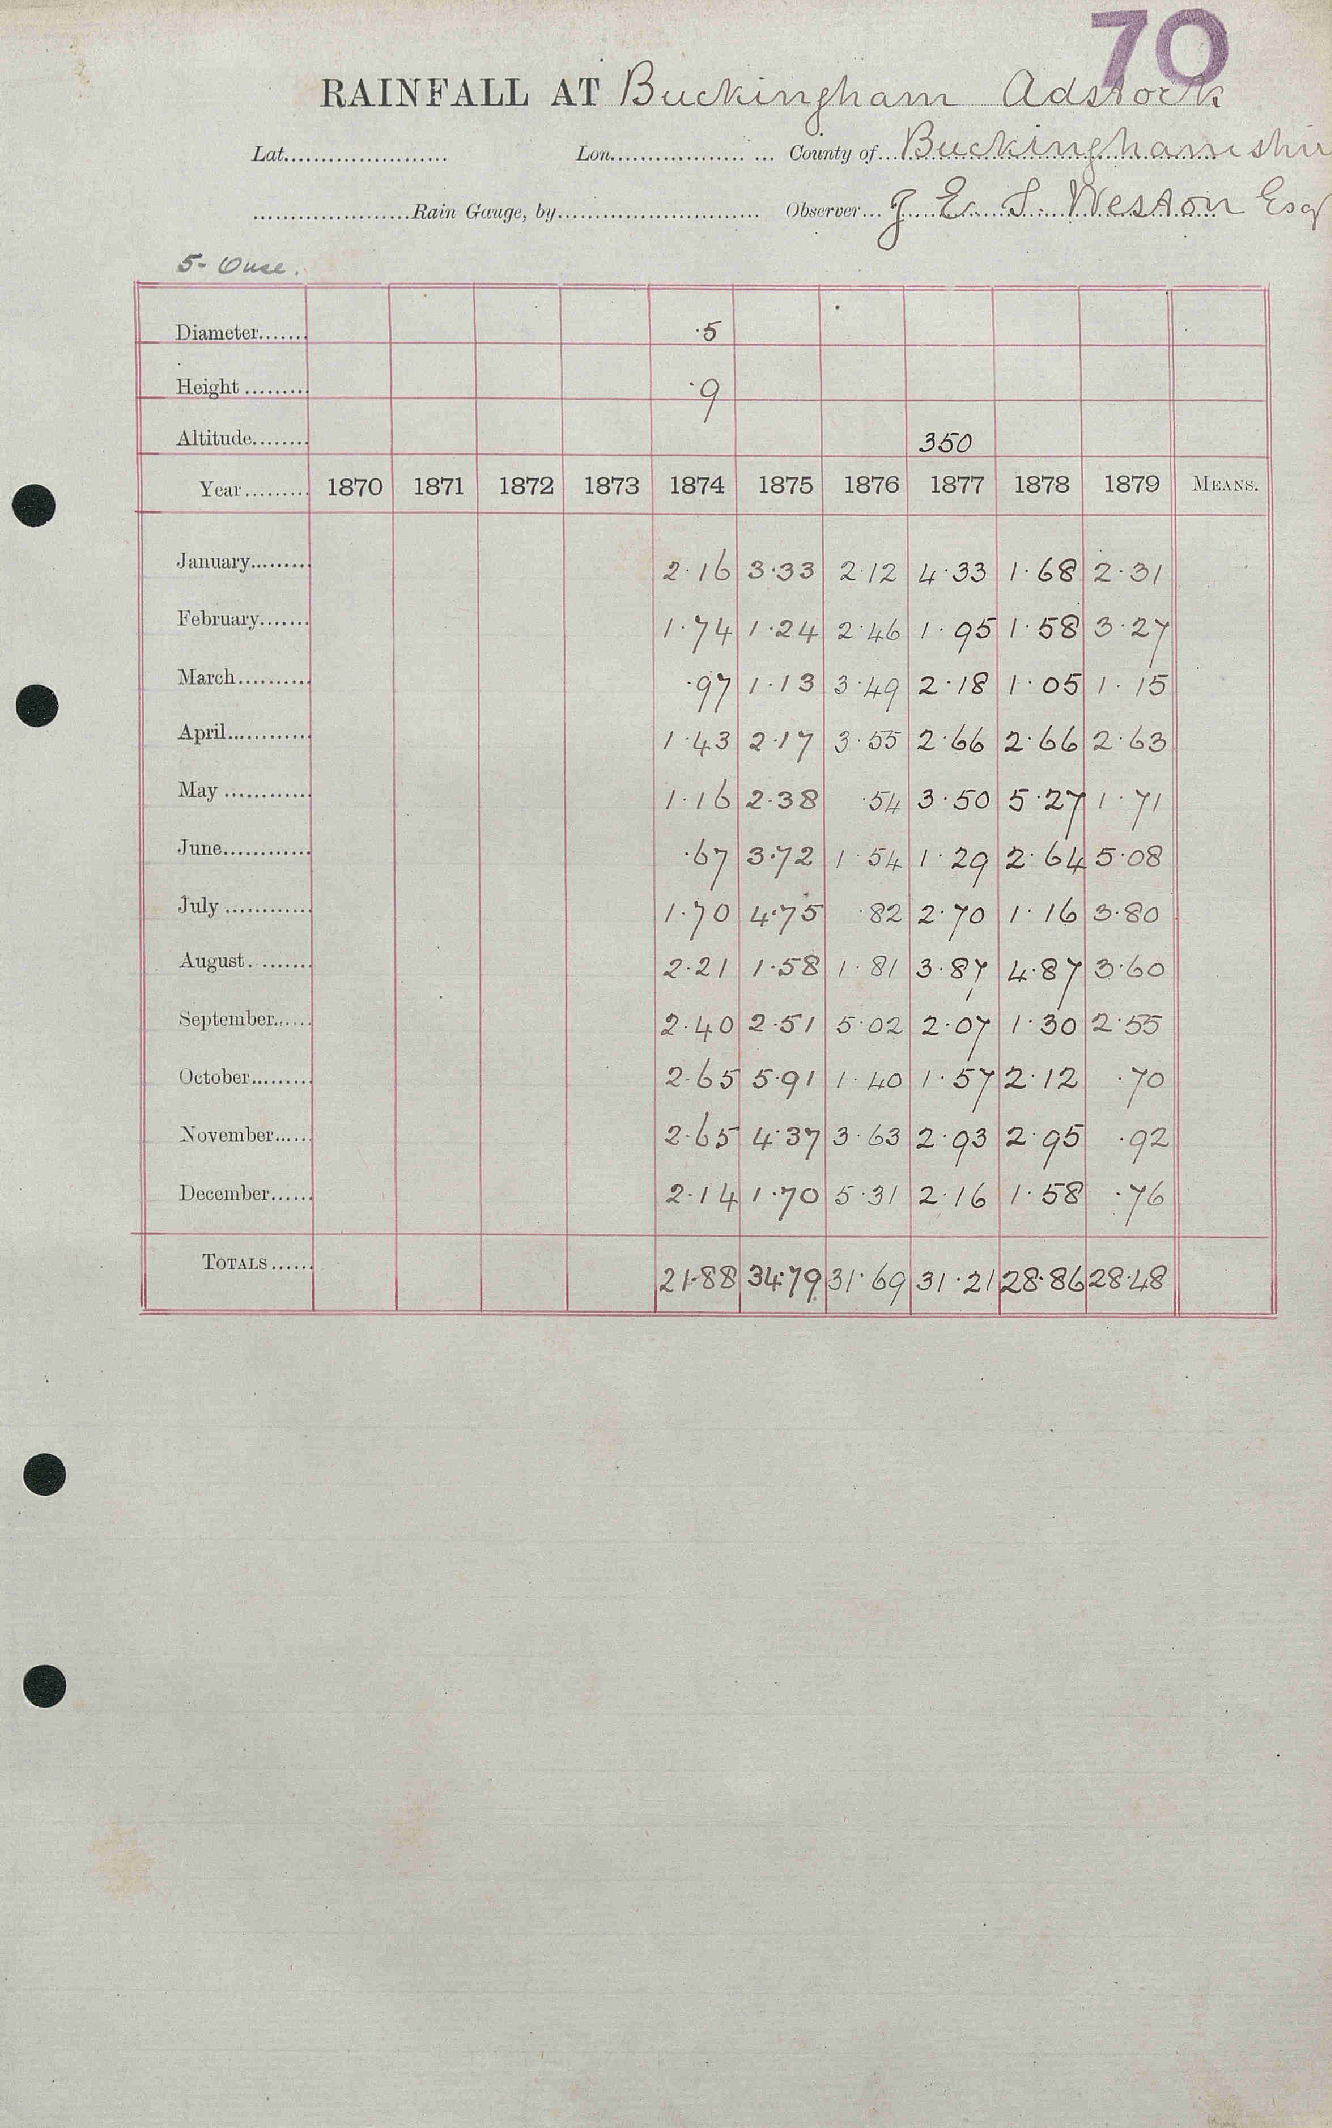 70
RAINFALL AT Buckingham Adstock
Lat. Lon. County of Buckinghamshir
Rain Gauge, by Observer J. E. S. Weston Esq
5- Ouse.
Diameter ·5
Height ·9
Altitude 350
Year 1870 1871 1872 1873 1874 1875 1876 1877 1878 1879 MEANS.
January 2·16 3·33 2·12 4·33 1·68 2·31
February 1·74 1·24 2·46 1·95 1·58 3·27
March ·97 1·13 3·49 2·18 1·05 1·15
April 1·43 2·17 3·55 2·66 2·66 2·63
May 1·16 2·38 ·54 3·50 5·27 1·71
June ·67 3·72 1·54 1·29 2·64 5·08
July 1·70 4·75 ·82 2·70 1·16 3·80
August 2·21 1·58 1·81 3·87 4·87 3·60
September 2·40 2·51 5·02 2·07 1·30 2·55
October 2·65 5·91 1·40 1·57 2·12 ·70
November 2·65 4·37 3·63 2·93 2·95 ·92
December 2·14 1·70 5·31 2·16 1·58 ·76
TOTALS 21·88 34·79 31·69 31·21 28·86 28·48